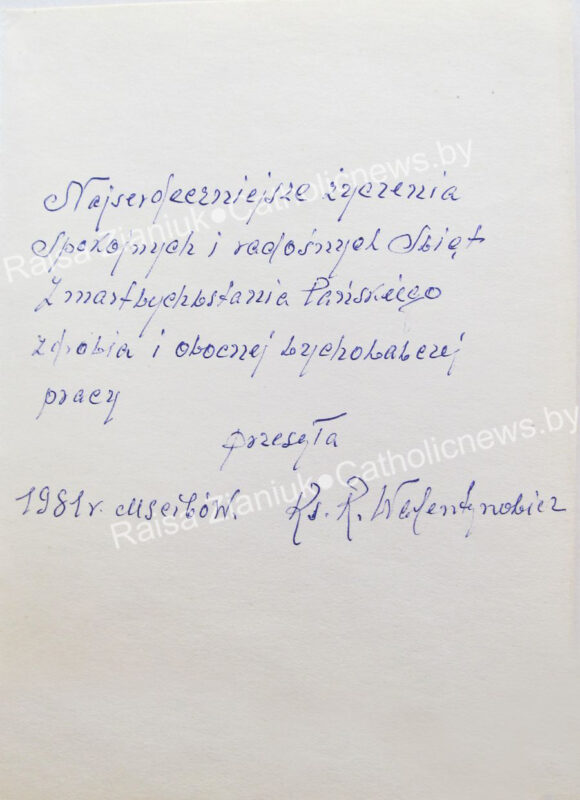 Najserdeczniejsze życzenia
Spokojnych i radośnych Swiąt
Zmartwychwstania Pańskiego
zdrowia i owocnej wychowawczej
pracy
przesyła
1981r. Mscibów. Ks. R. Walentynowicz
Raisa Zianiuk●Catholicnews.by
Raisa Zianiuk●Catholicnews.by